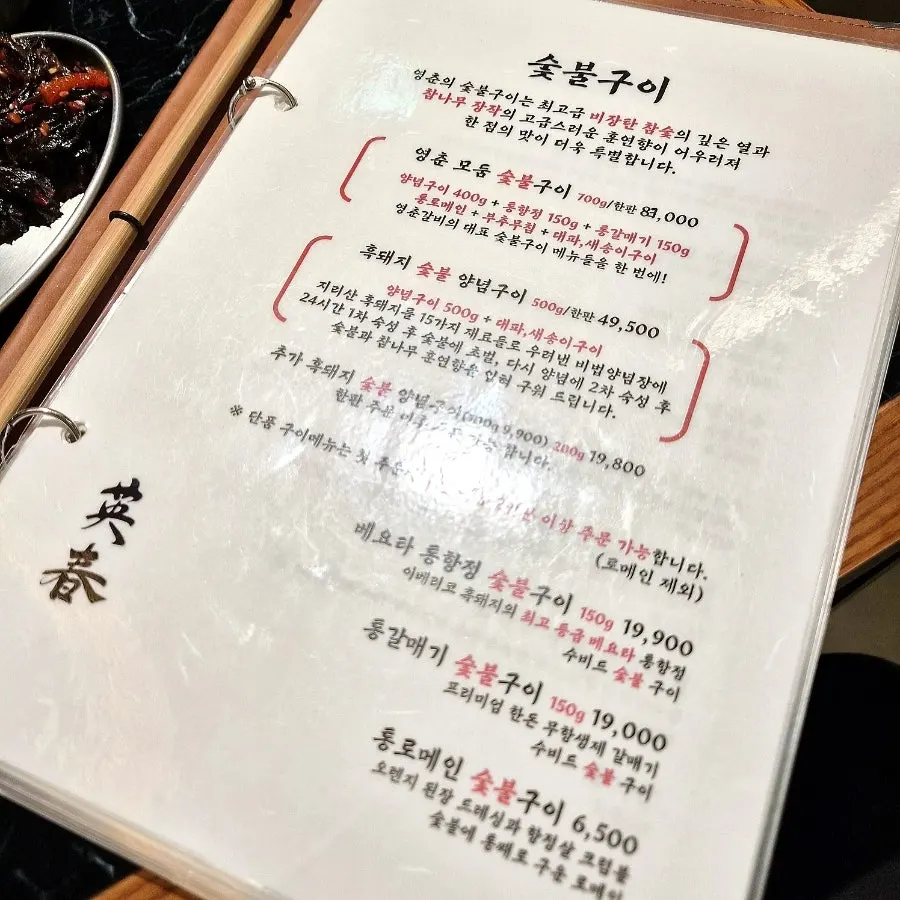 숯불구이
영춘의 숯불구이는 최고급 비장탄 참숯의 깊은 열과
참나무 장작의 고급스러운 훈연향이 어우러져
한 점의 맛이 더욱 특별합니다.
영춘 모둠 숯불구이 700g/한판 83,000
양념구이 400g + 통항정 150g + 통갈매기 150g
통로메인 + 부추무침 + 대파,새송이구이
영춘갈비의 대표 숯불구이 메뉴들을 한 번에!
흑돼지 숯불 양념구이 500g/한판 49,500
양념구이 500g + 대파,새송이구이
지리산 흑돼지를 15가지 재료들로 우려낸 비법양념장에
24시간 1차 숙성 후 숯불에 초벌, 다시 양념에 2차 숙성 후
숯불과 참나무 훈연향을 입혀 구워 드립니다.
추가 흑돼지 숯불 양념구이(100g 9,900) 200g 19,800
한판 주문 가능 합니다.
※ 단품 구이메뉴는 첫 주문 이상 주문 가능합니다.
(로메인 제외)
베요타 통항정 숯불구이 150g 19,900
이베리코 흑돼지의 최고 등급 베요타 통항정
수비드 숯불 구이
통갈매기 숯불구이 150g 19,000
프리미엄 한돈 무항생제 갈매기
수비드 숯불 구이
통로메인 숯불구이 6,500
오렌지 된장 드레싱과 항정살 크럼블
숯불에 통째로 구운 로메인
英春